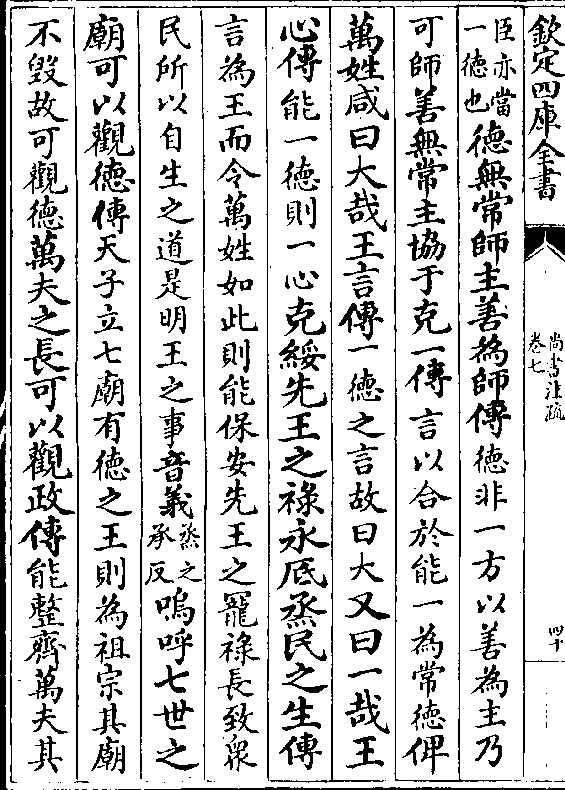 欽定四庫全書
尚書注疏
卷七
四十
臣亦當
一德也德無常師主善為師傳德非一方以善為主乃
可師善無常主協于克一傳言以合於能一為常德俾
萬姓咸曰大哉王言傳一德之言故曰大又曰一哉王
心傳能一德則一心克綏先王之祿永厎烝民之生傳
言為王而令萬姓如此則能保安先王之寵祿長致衆
民所以自生之道是明王之事音義烝之
承反嗚呼七世之
廟可以觀德傳天子立七廟有德之王則為祖宗其廟
不毁故可觀德萬夫之長可以觀政傳能整齊萬夫其